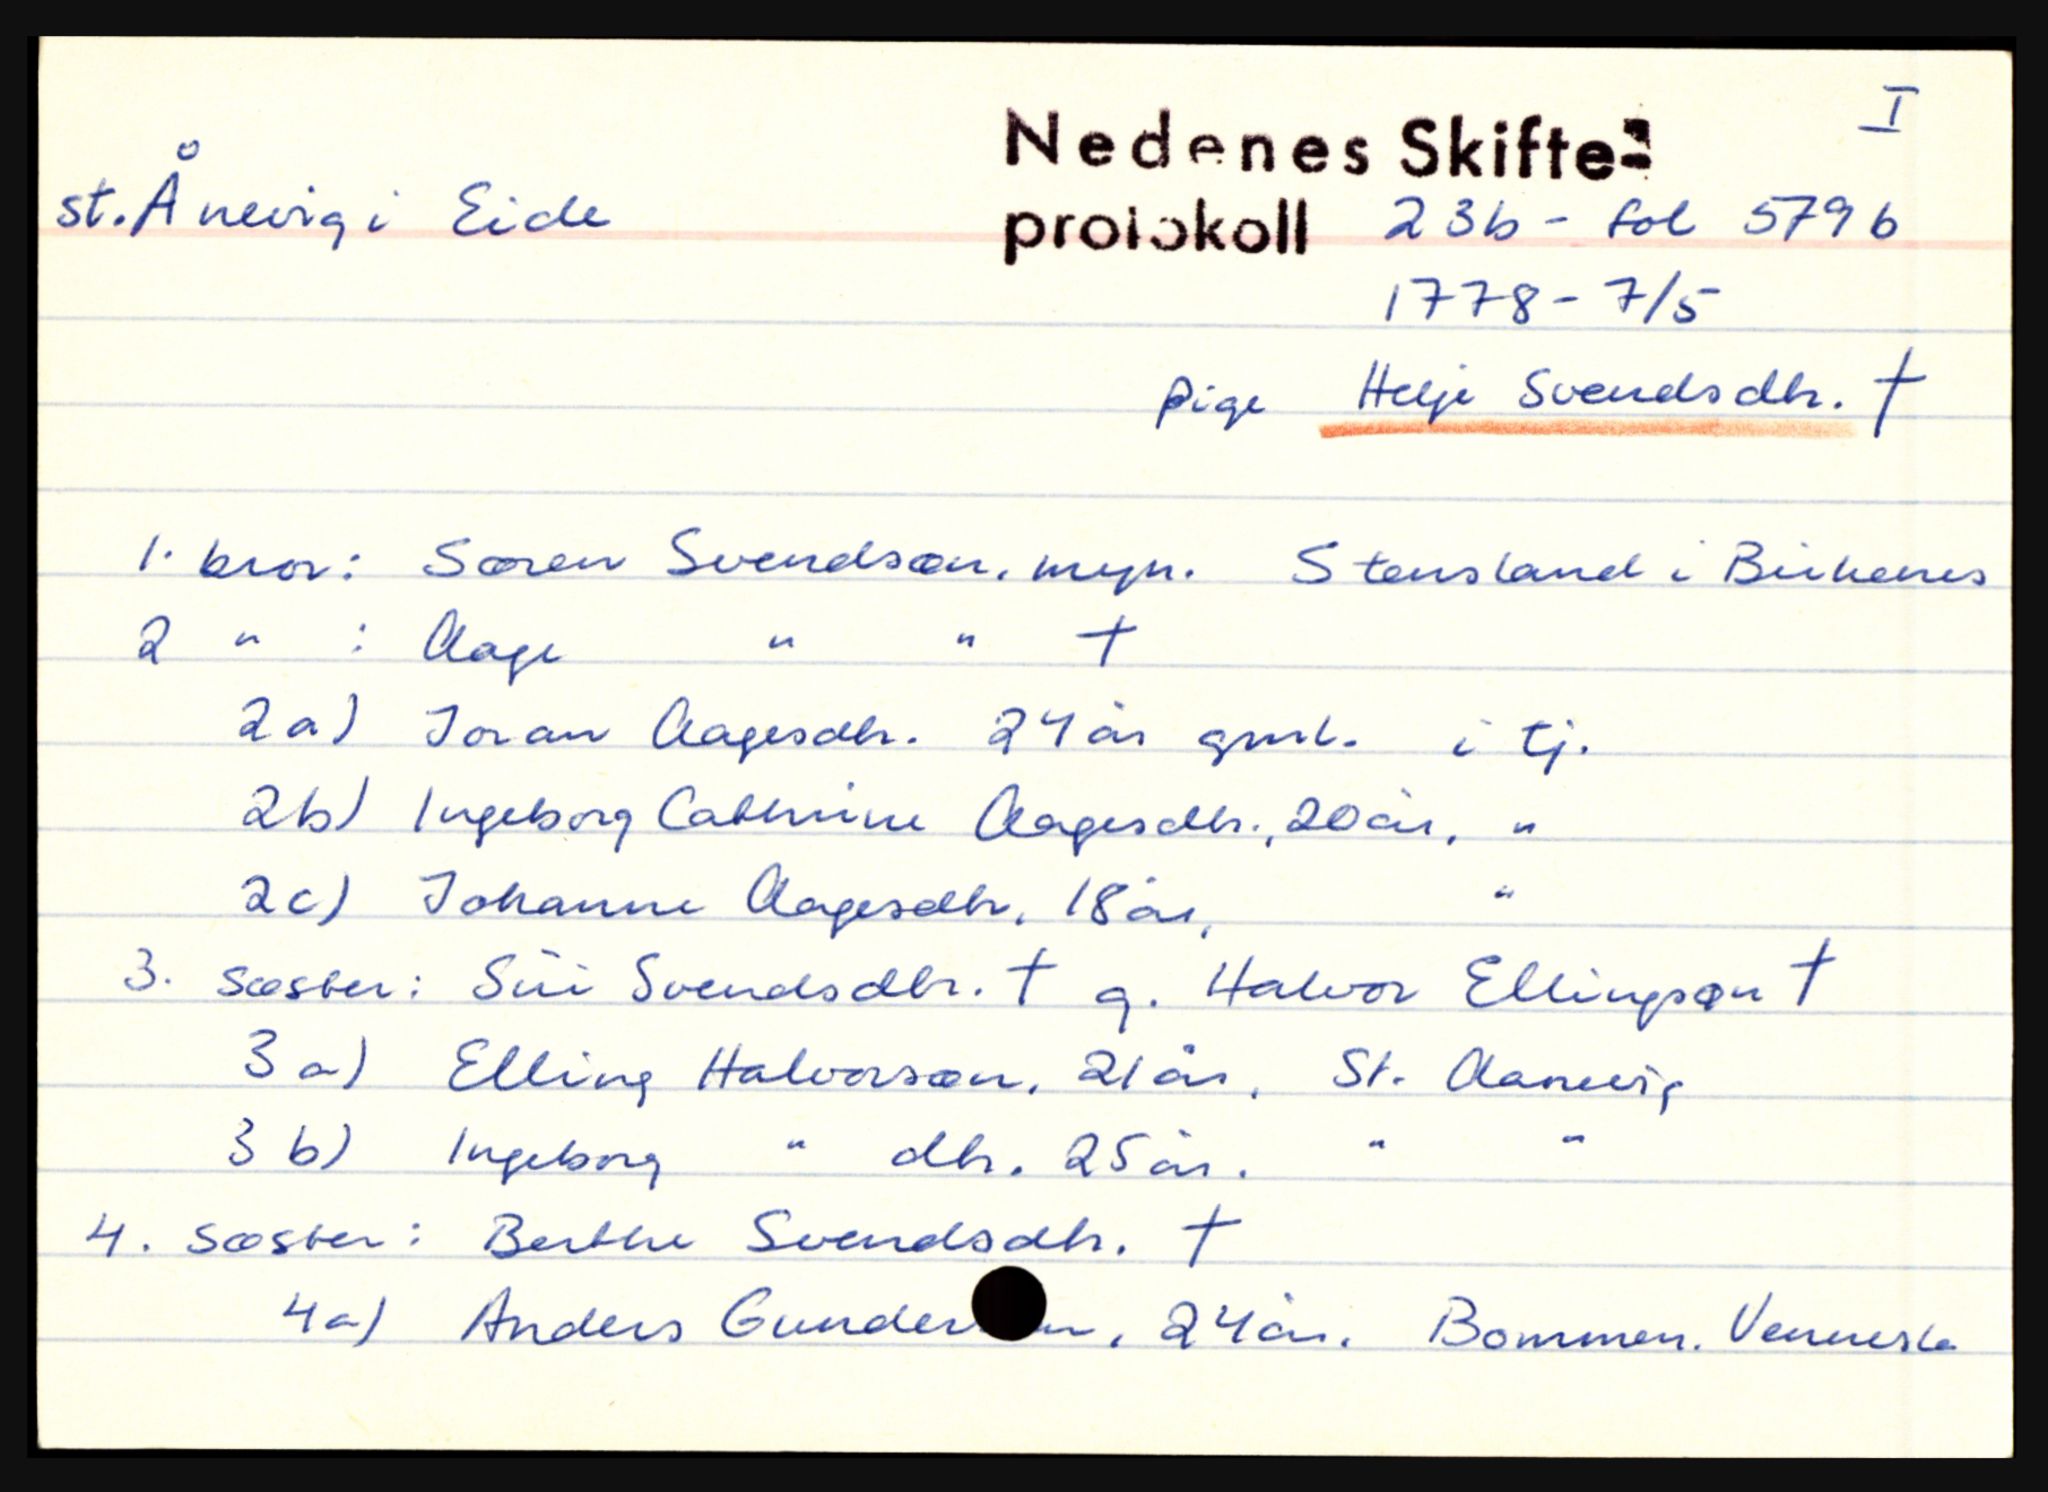 I
Nedenes Skifte=
st. Ånevig i Eide protokoll 23b - fol 579b
1778 - 7/5
pige Helje Svendsdtr. †
1. bror: Søren Svendsøn, myn. Stensland i Birkenes
2 " : Aage " " †
2a) Joran Aagesdtr. 24 år gml. i tj.
2b) Ingeborg Cathrine Aagesdtr., 20 år, "
2c) Johanne Aagesdtr, 18 år, "
3. søster: Siri Svendsdtr. † g. Halvor Ellingsøn †
3a) Elling Halvorsøn, 21 år, St. Aanevig
3b) Ingeborg " dtr. 25 år. " "
4. søster: Berthe Svendsdtr. †
4a) Anders , 24 år. Bommen. Vennesla